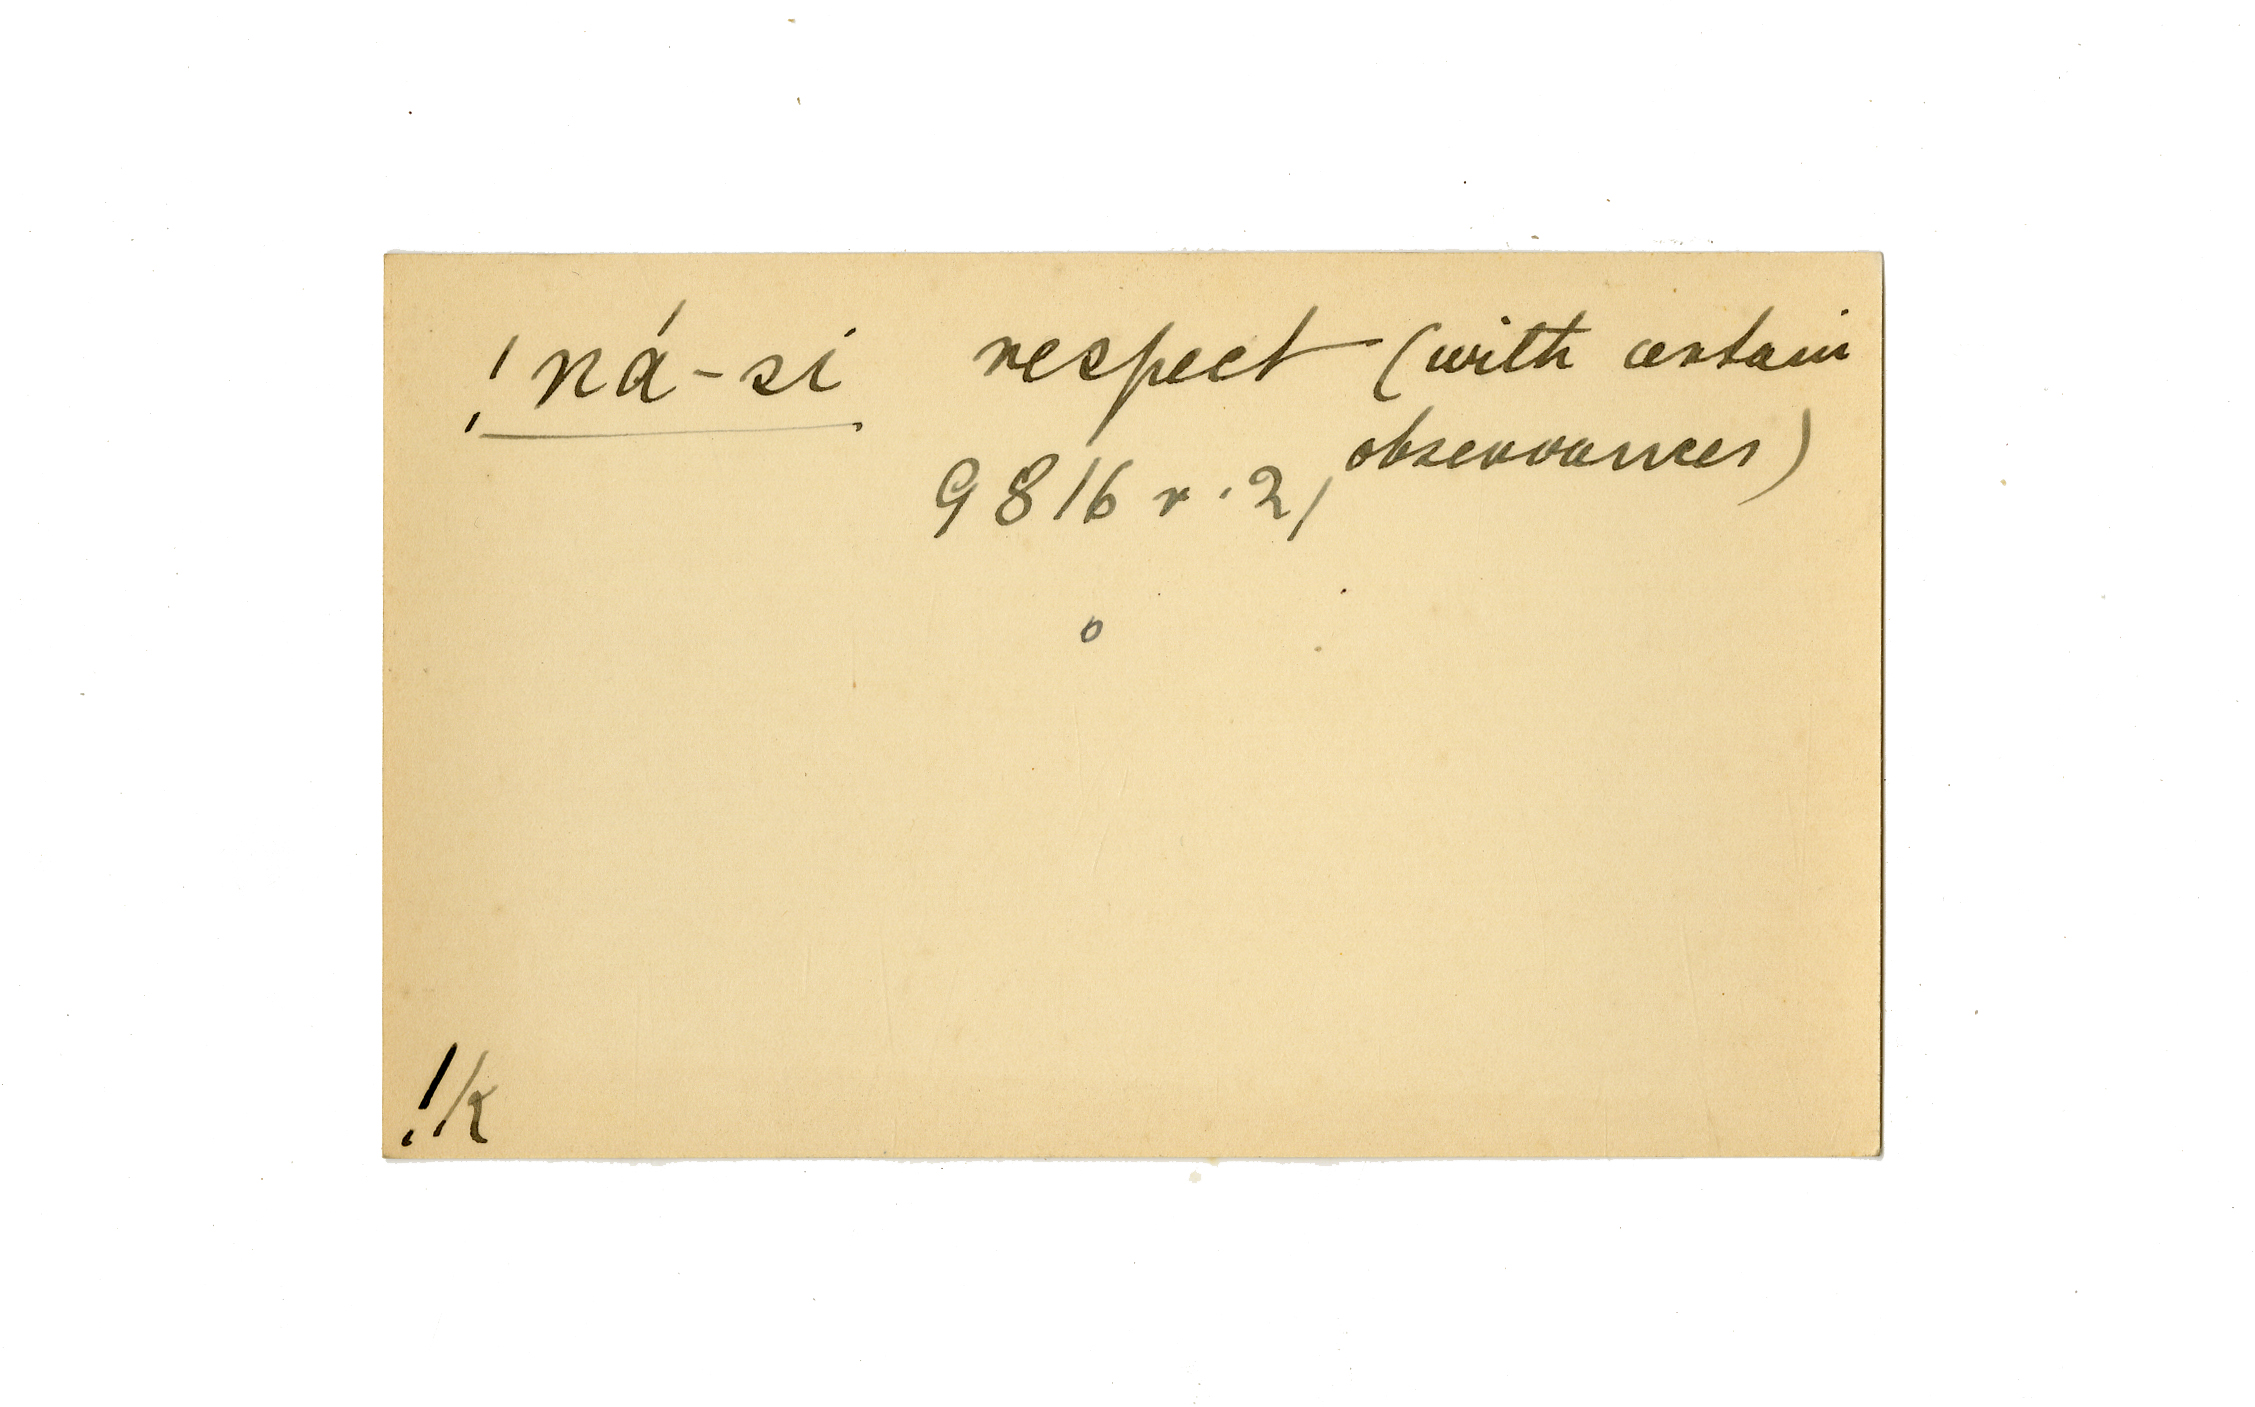 !ná-si respect (with certain
observances)
9816 r. 2,
!k